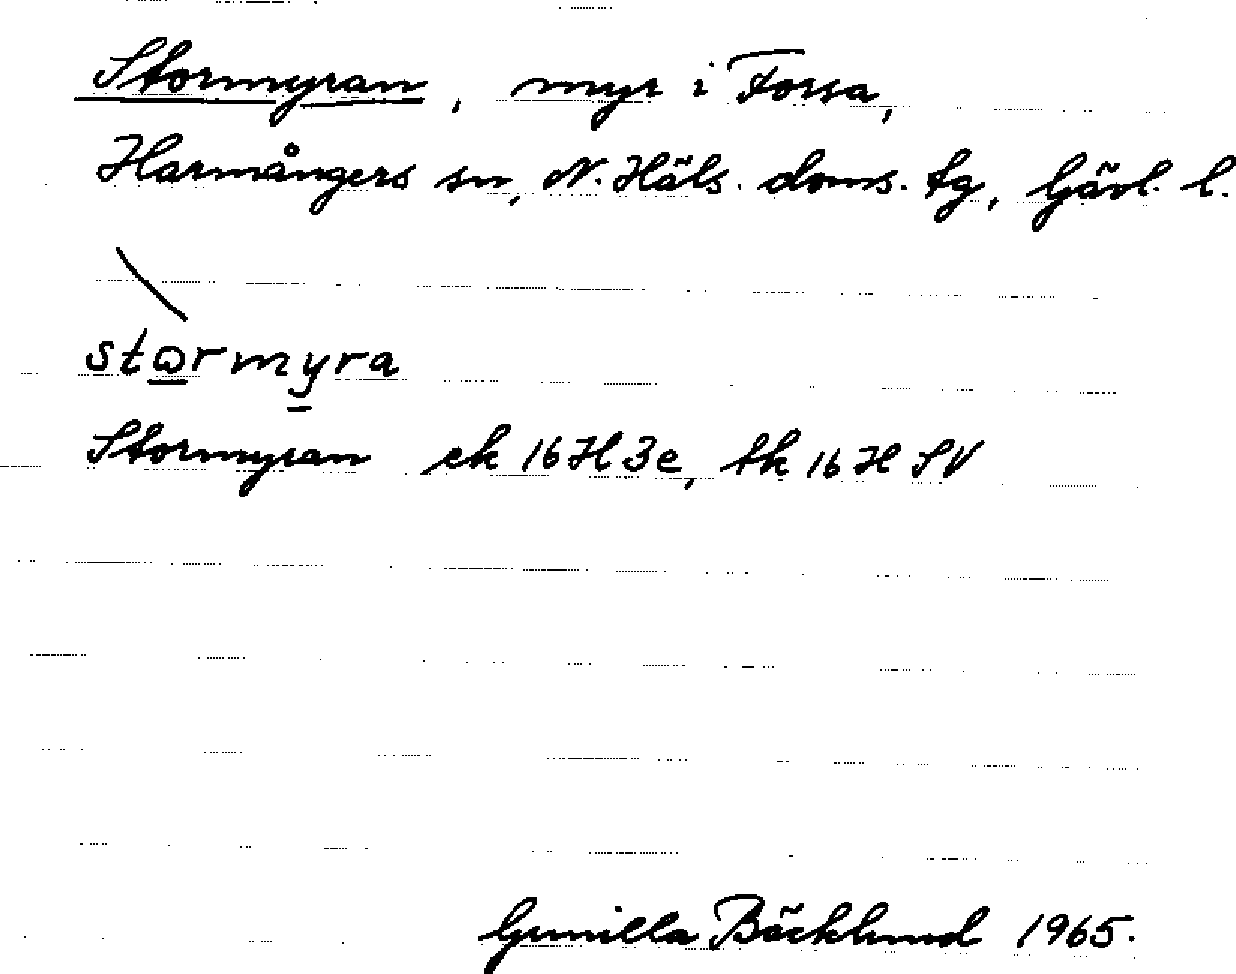 Stormyran, myr i Forsa,
Harmångers sn, N. Häls. doms. tg, Gävl. l.
stωrmyra
Stormyran ek 16H3e, tk 16H SV
Gunilla Bäcklund 1965.